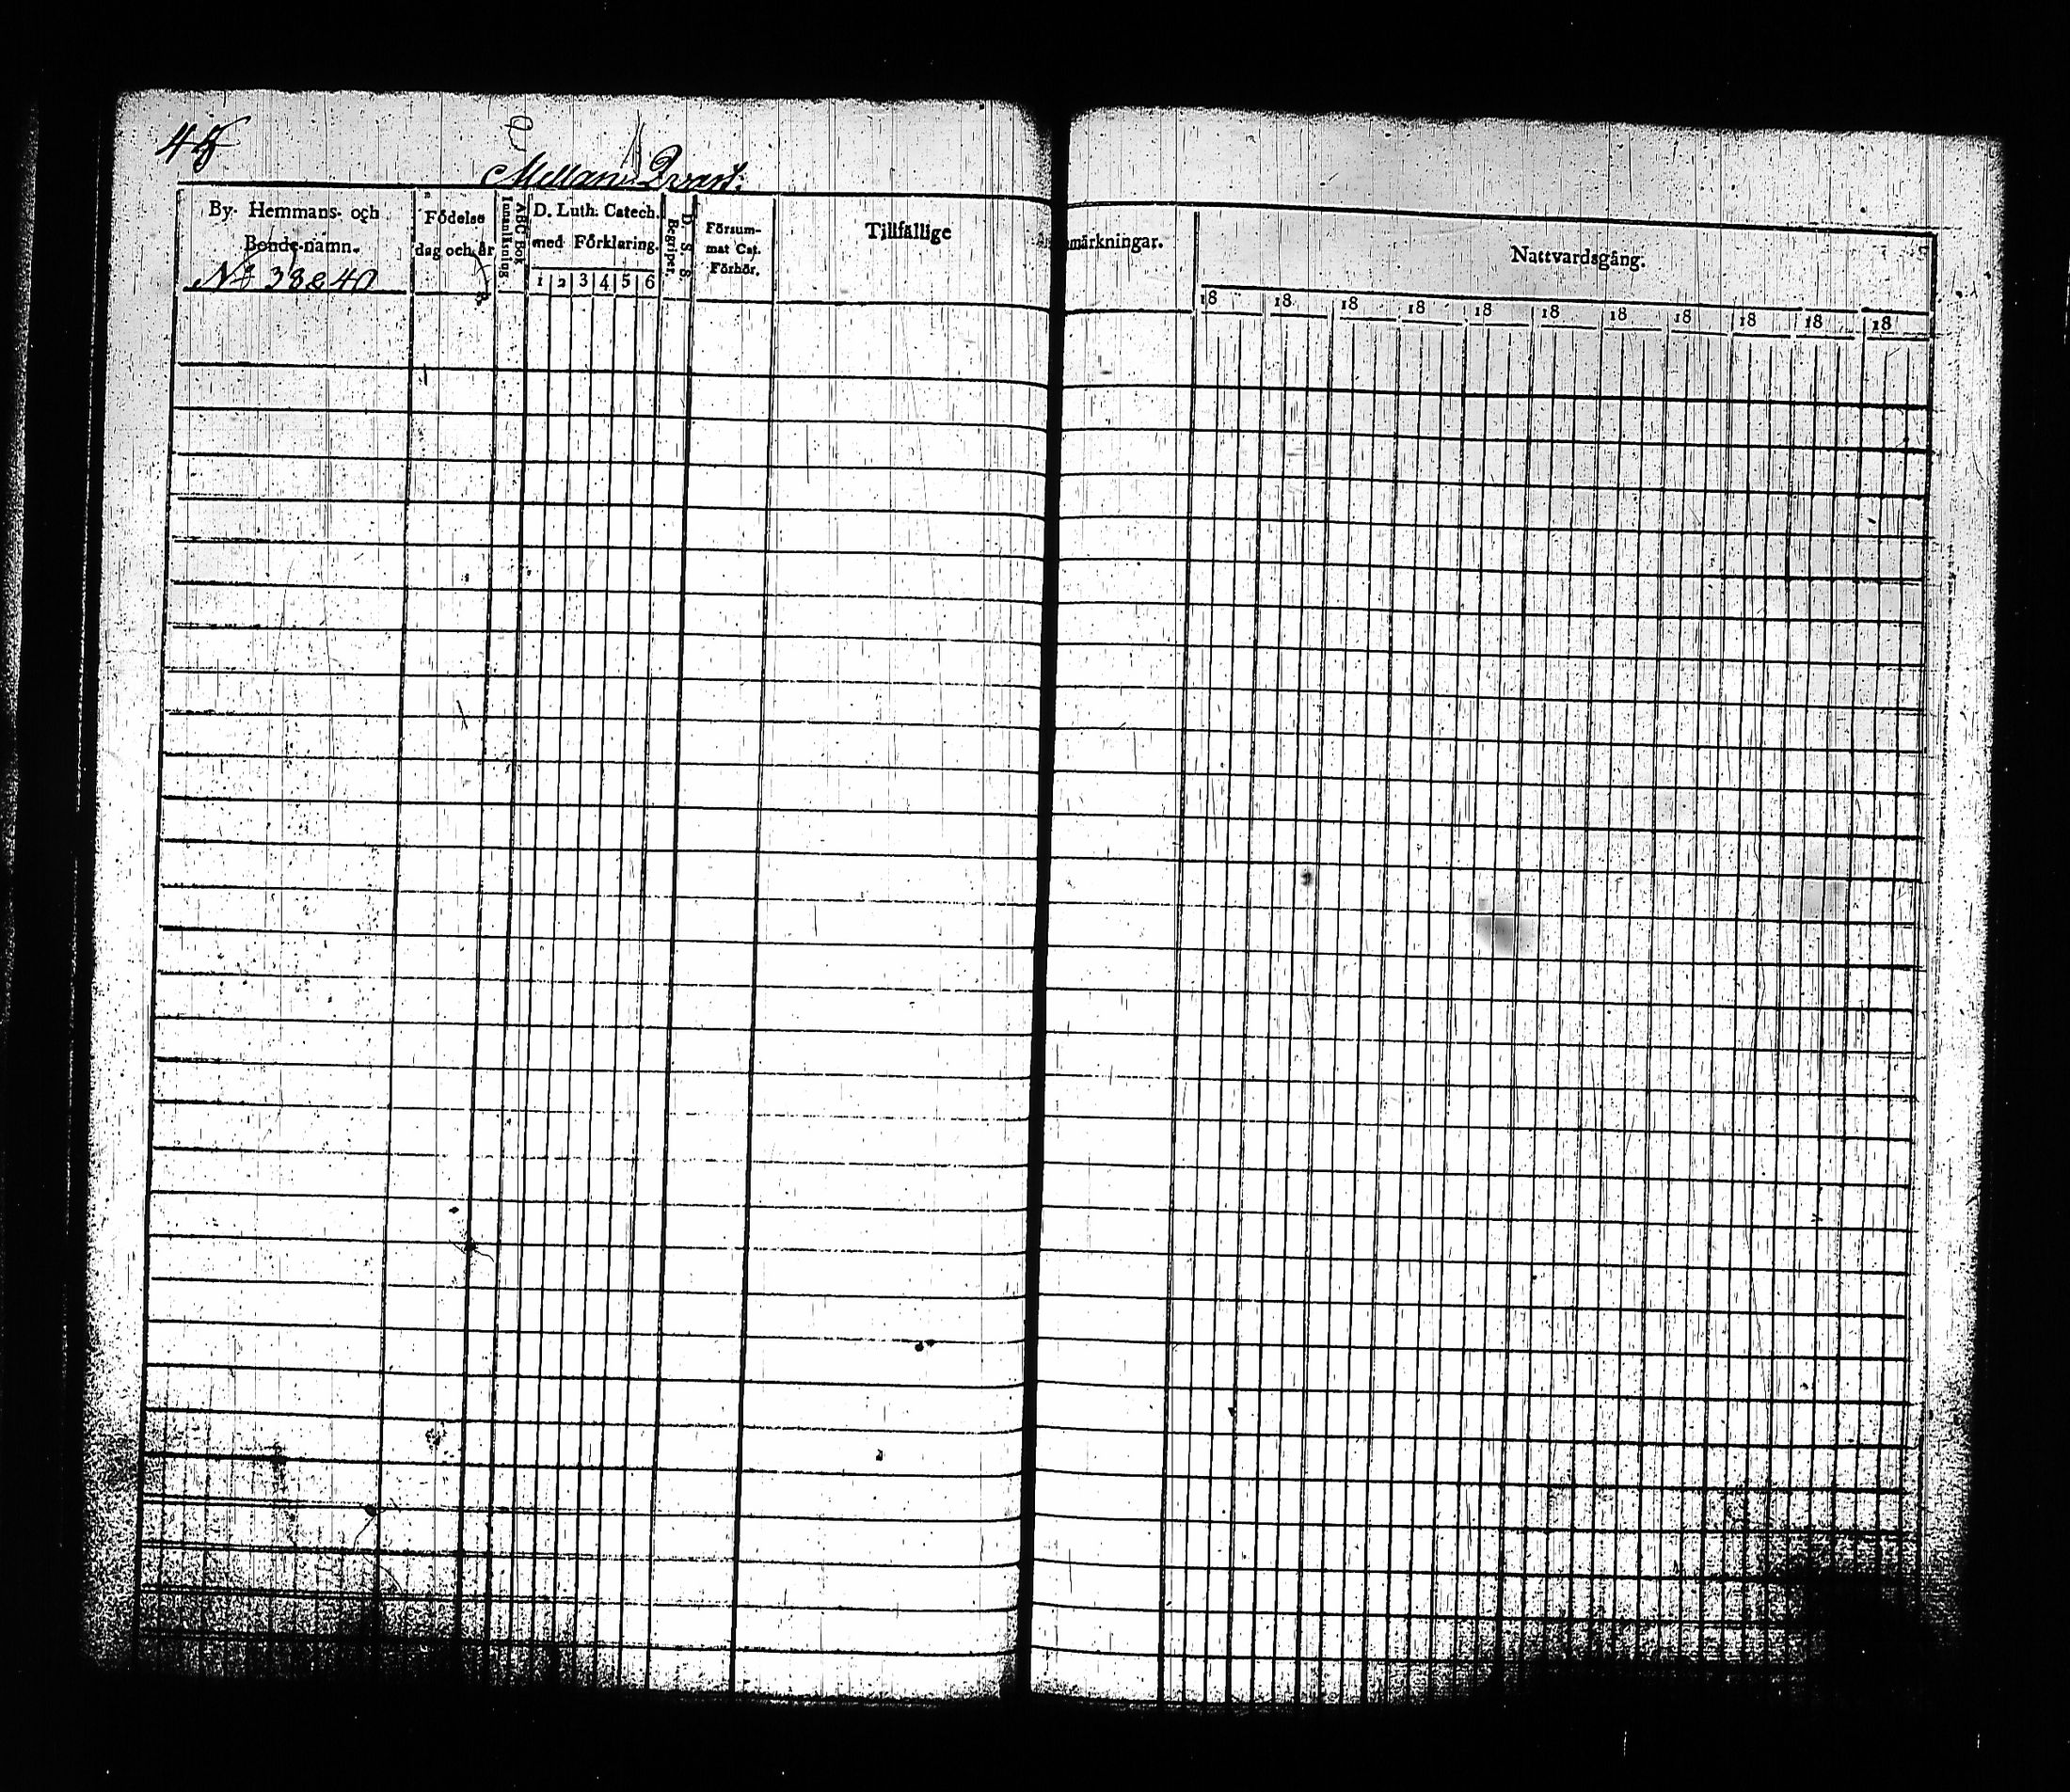 45
Mellan Qvart.
By- Hemmans- och
Bonde-namn.
No 38 & 40
Födelse
dag och år
ABC Bok
Innanläsning.
D. Luth. Catech.
med Förklaring.
1 2 3 4 5 6
D. S. S.
Begriper.
Försum-
mat Cat.
Förhör.
Tillfällige
märkningar.
Nattvardsgång.
18 18 18 18 18 18 18 18 18 18 18